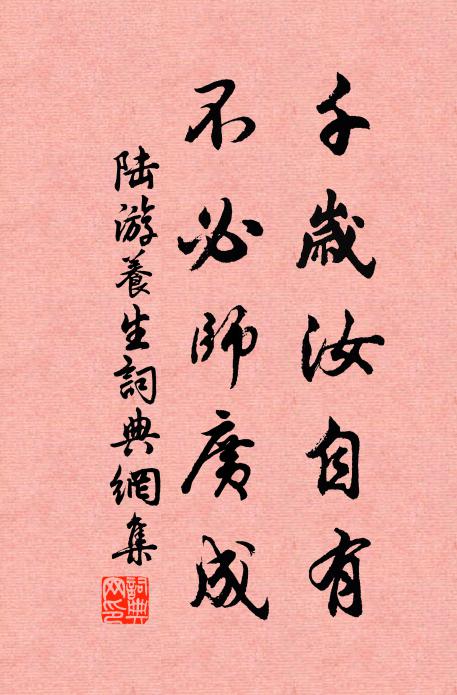 千歲汝自有
不必師廣成
陸游養生詞典網集
詞典
網印